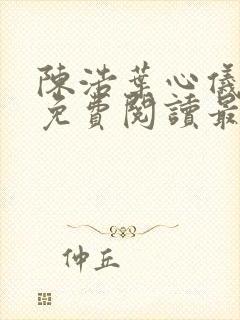 陳浩葉心儀
免費閱讀最
仲丘